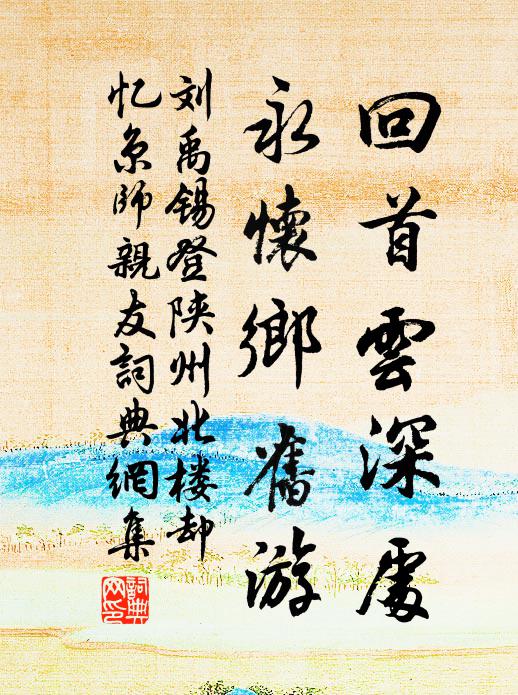 回首雲深處
永懷鄉舊游
刘禹锡登陕州北楼却
忆京师親友詞典網集
詞典